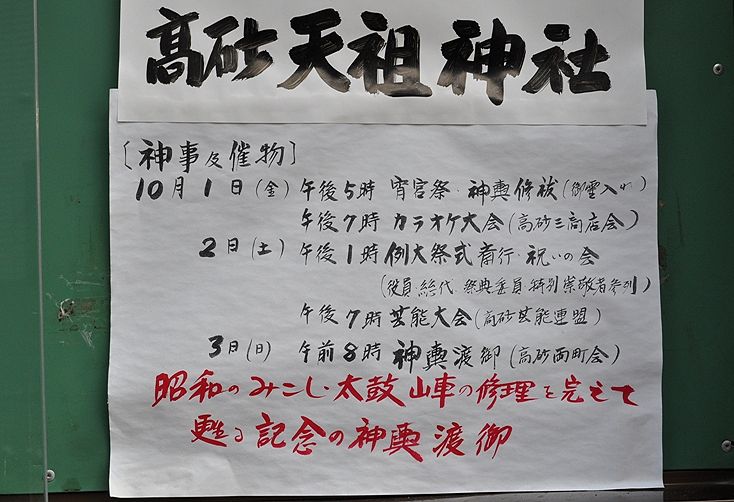 高砂天祖神社
〔神事及催物〕
10月1日(金) 午後5時 宵宮祭・神輿修祓(御霊入れ)
午後7時 カラオケ大会(高砂三商店会)
2日(土) 午後1時 例大祭式斎行・祝いの会
(役員・総代・祭典委員・特別崇敬者参列)
午後7時 芸能大会(高砂芸能連盟)
3日(日) 午前8時 神輿渡御(高砂両町会)
昭和のみこし・太鼓山車の修理を完えて
甦る記念の神輿渡御